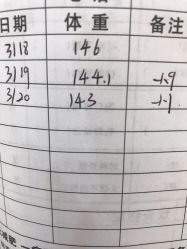 日期 体重 备注
3/18 146
3/19 144.1 -1.9
3/20 143 -1.1